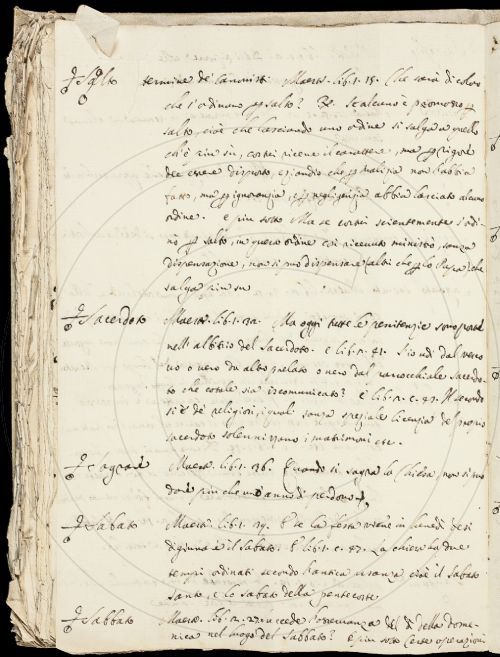 Salto termine de' Canonisti Maestr. lib. 1. 15. Che sarà di coloro
che s'ordinano per salto? Se alcuno è promosso per
salto, cioè che lasciando uno ordine si salga a quello
ch'è più su, costui riceve il carattere, ma per rigore
dee essere disposto, eziandio che per malizia non l'abbia
fatto, ma per ignoranzia, e per negligenzia abbia lasciato alcuno
ordine. e più sotto Ma se costui scientemente s'ordi-
nò per salto, in questo ordine così ricevuto ministrò, sanza
dispensazione, non si può dispensare che lo Papa che
salga più su
Sacerdoto Maestr. lib. 1. Ma oggi tutte le penitenzie sono poste
nell'albitrio del Sacerdote. e lib. 2. c. 41. S'odi dal vesco
vo o vero da altro prelato o vero dal parrocchiale Sacerdo-
to che cotale sia iscomunicato? e lib. 2. c. Il secondo
si è de' religiosi, i quali sanza speziale licenzia del propio
sacerdoto solennizzano i matrimoni etc.
Sagrare Maestr. lib. 1. 36. Quando si sagra la Chiesa, non si può
dare più che uno anno di perdono
Sabato Maestr. lib. 1. 29. E se la festa viene in lunedì desi
digiunare il sabato. E lib. 1. c. La chiesa in due
tempi ordinati secondo l'antica usanza cioè il Sabato
Santo, e lo Sabato della pentecoste
Sabbato Maestr. lib. 2. succede l'osservanza del dì della dome-
nica nel luogo del Sabbato? e più sotto Certe operazioni